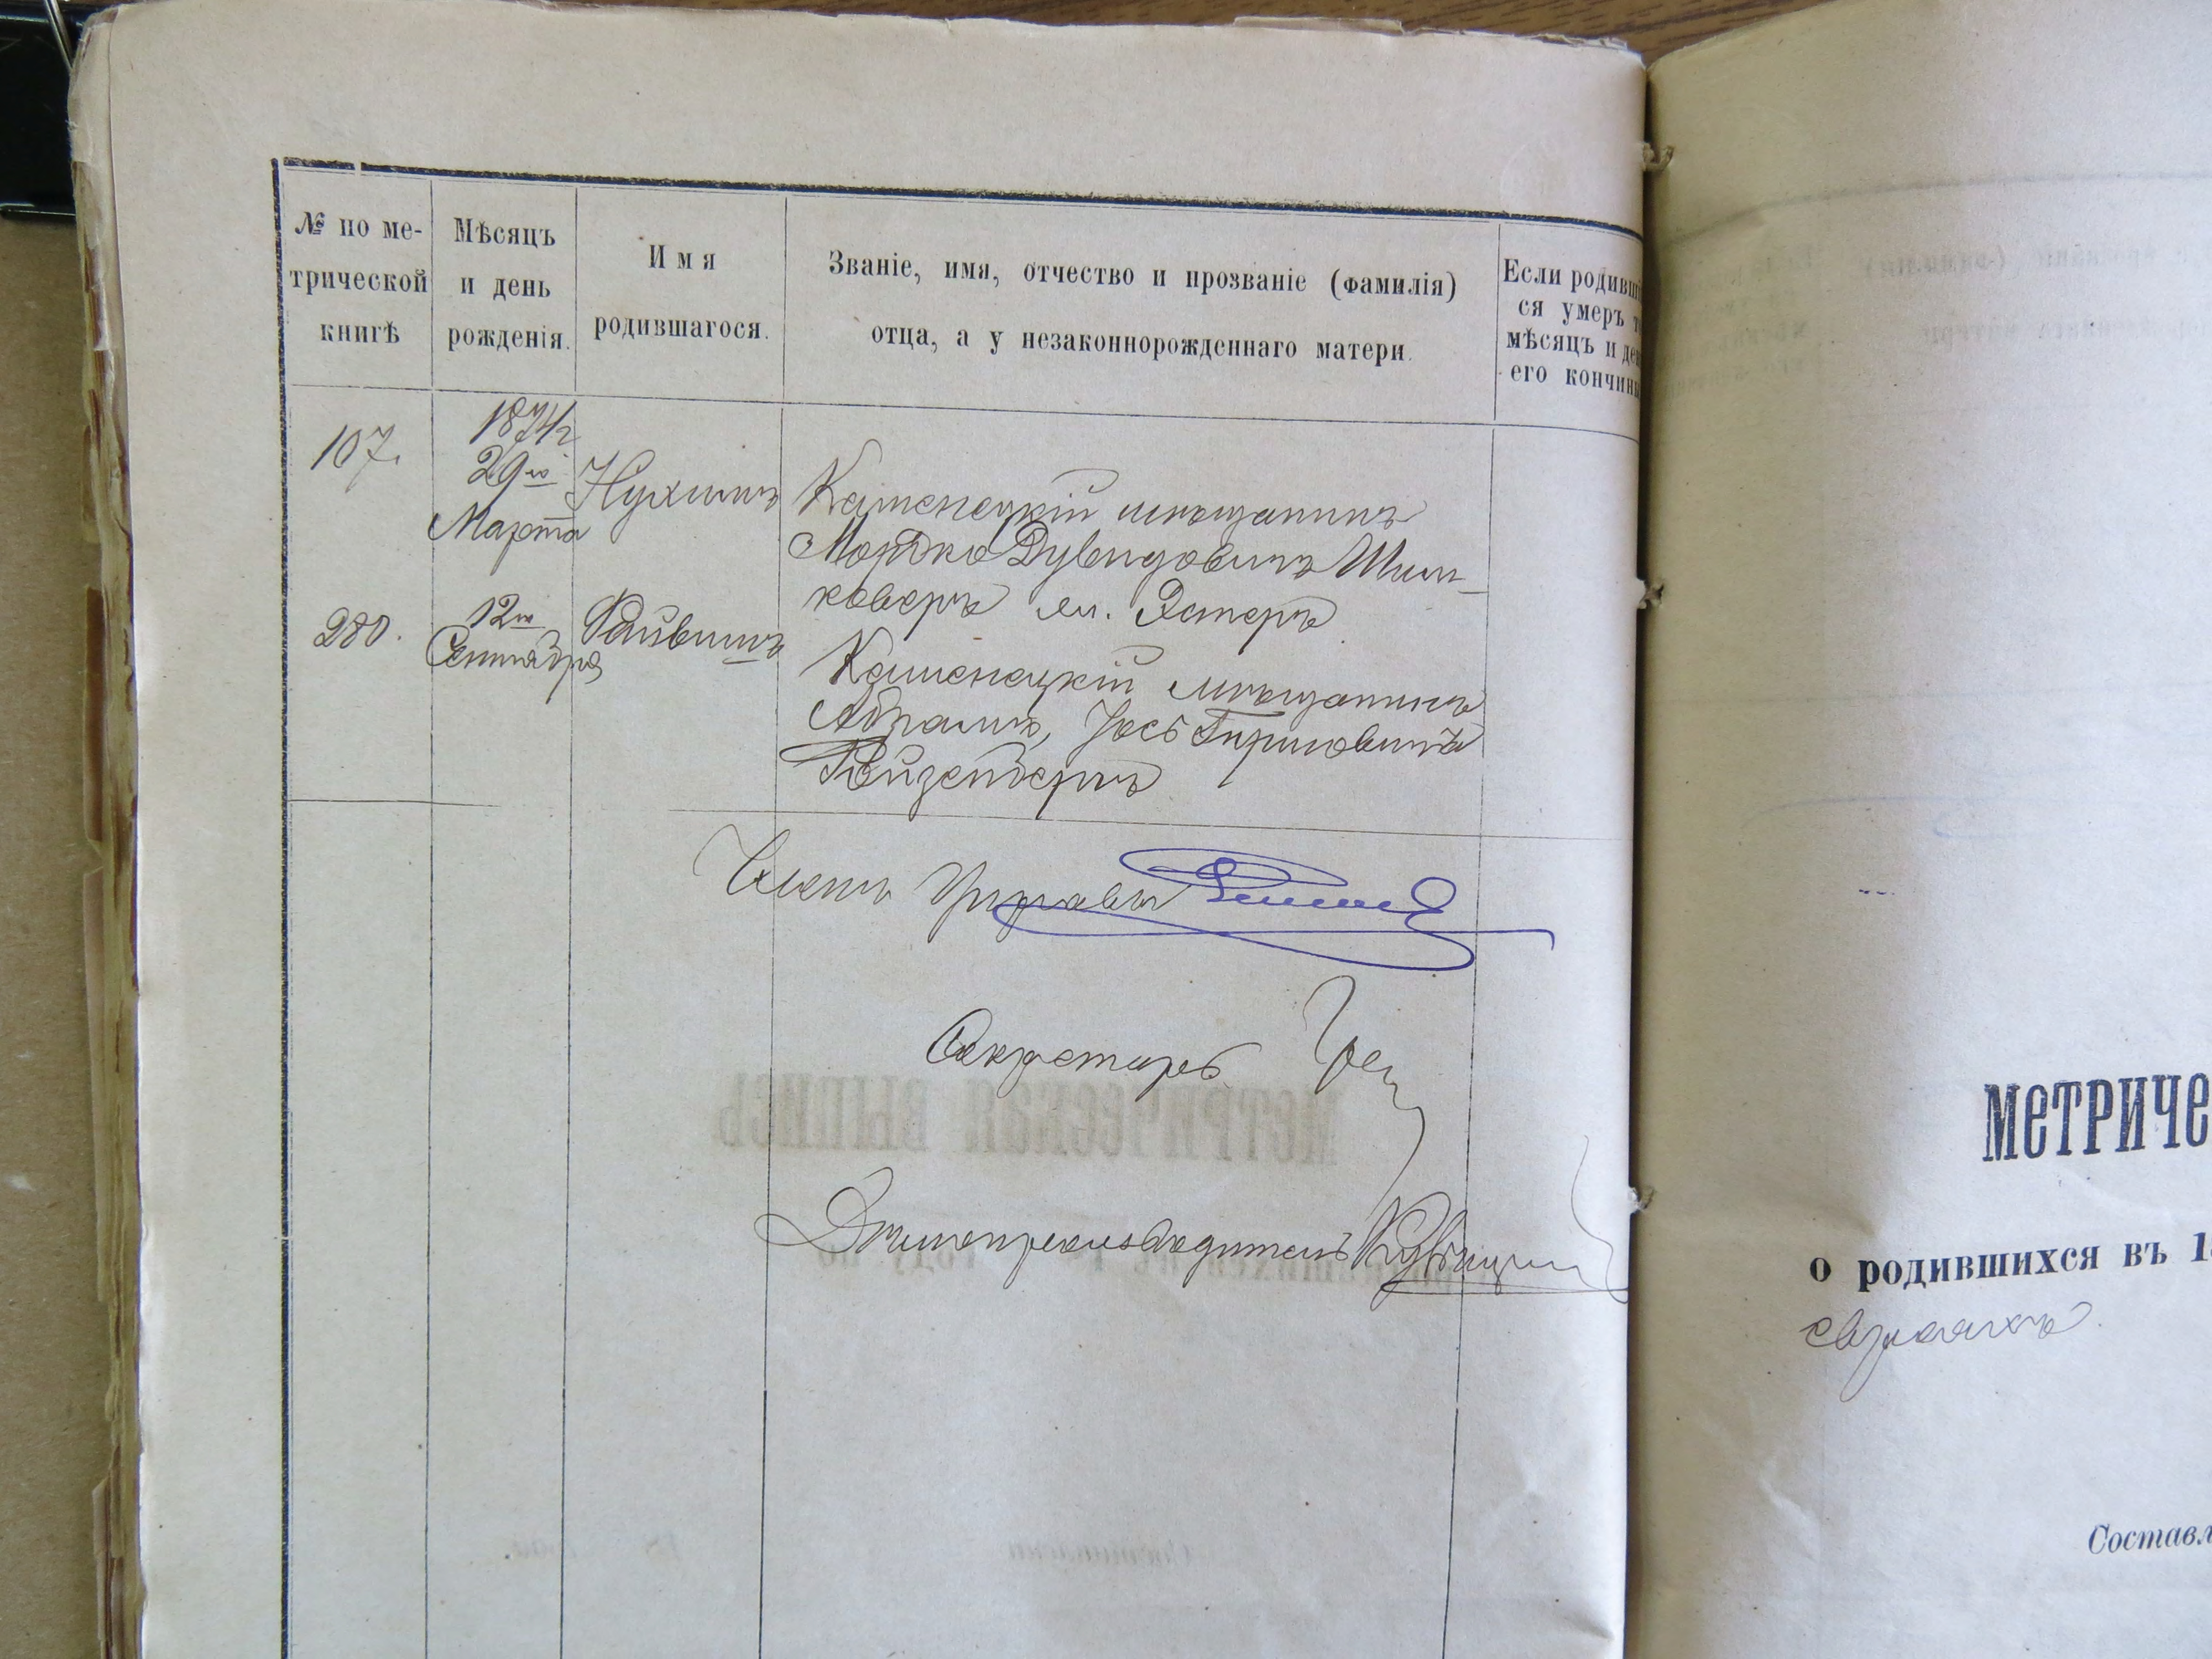 № по ме-
трической
книгѣ
Мѣсяцъ
и день
рожденія.
Имя
родившагося.
Званіе, имя, отчество и прозваніе (фамилія)
отца, а у незаконнорожденнаго матери.
Если родивші
ся умеръ то
мѣсяцъ и де
его кончин
107.
1874 г
29го
Марта
Нухимъ
Каменецкій мѣщанинъ
Мордко Дувидовичъ Шин-
коверъ ял. Эстеръ
280.
12го
Сентября
Файвишъ
Каменецкій мѣщанинъ
Абрамъ, Іось Гершовичъ
Вайзенбергъ
Членъ Управы
Секретарь
Дѣлопроизводитель
МЕТРИЧЕ
о родившихся въ 1
евреяхъ
Составл